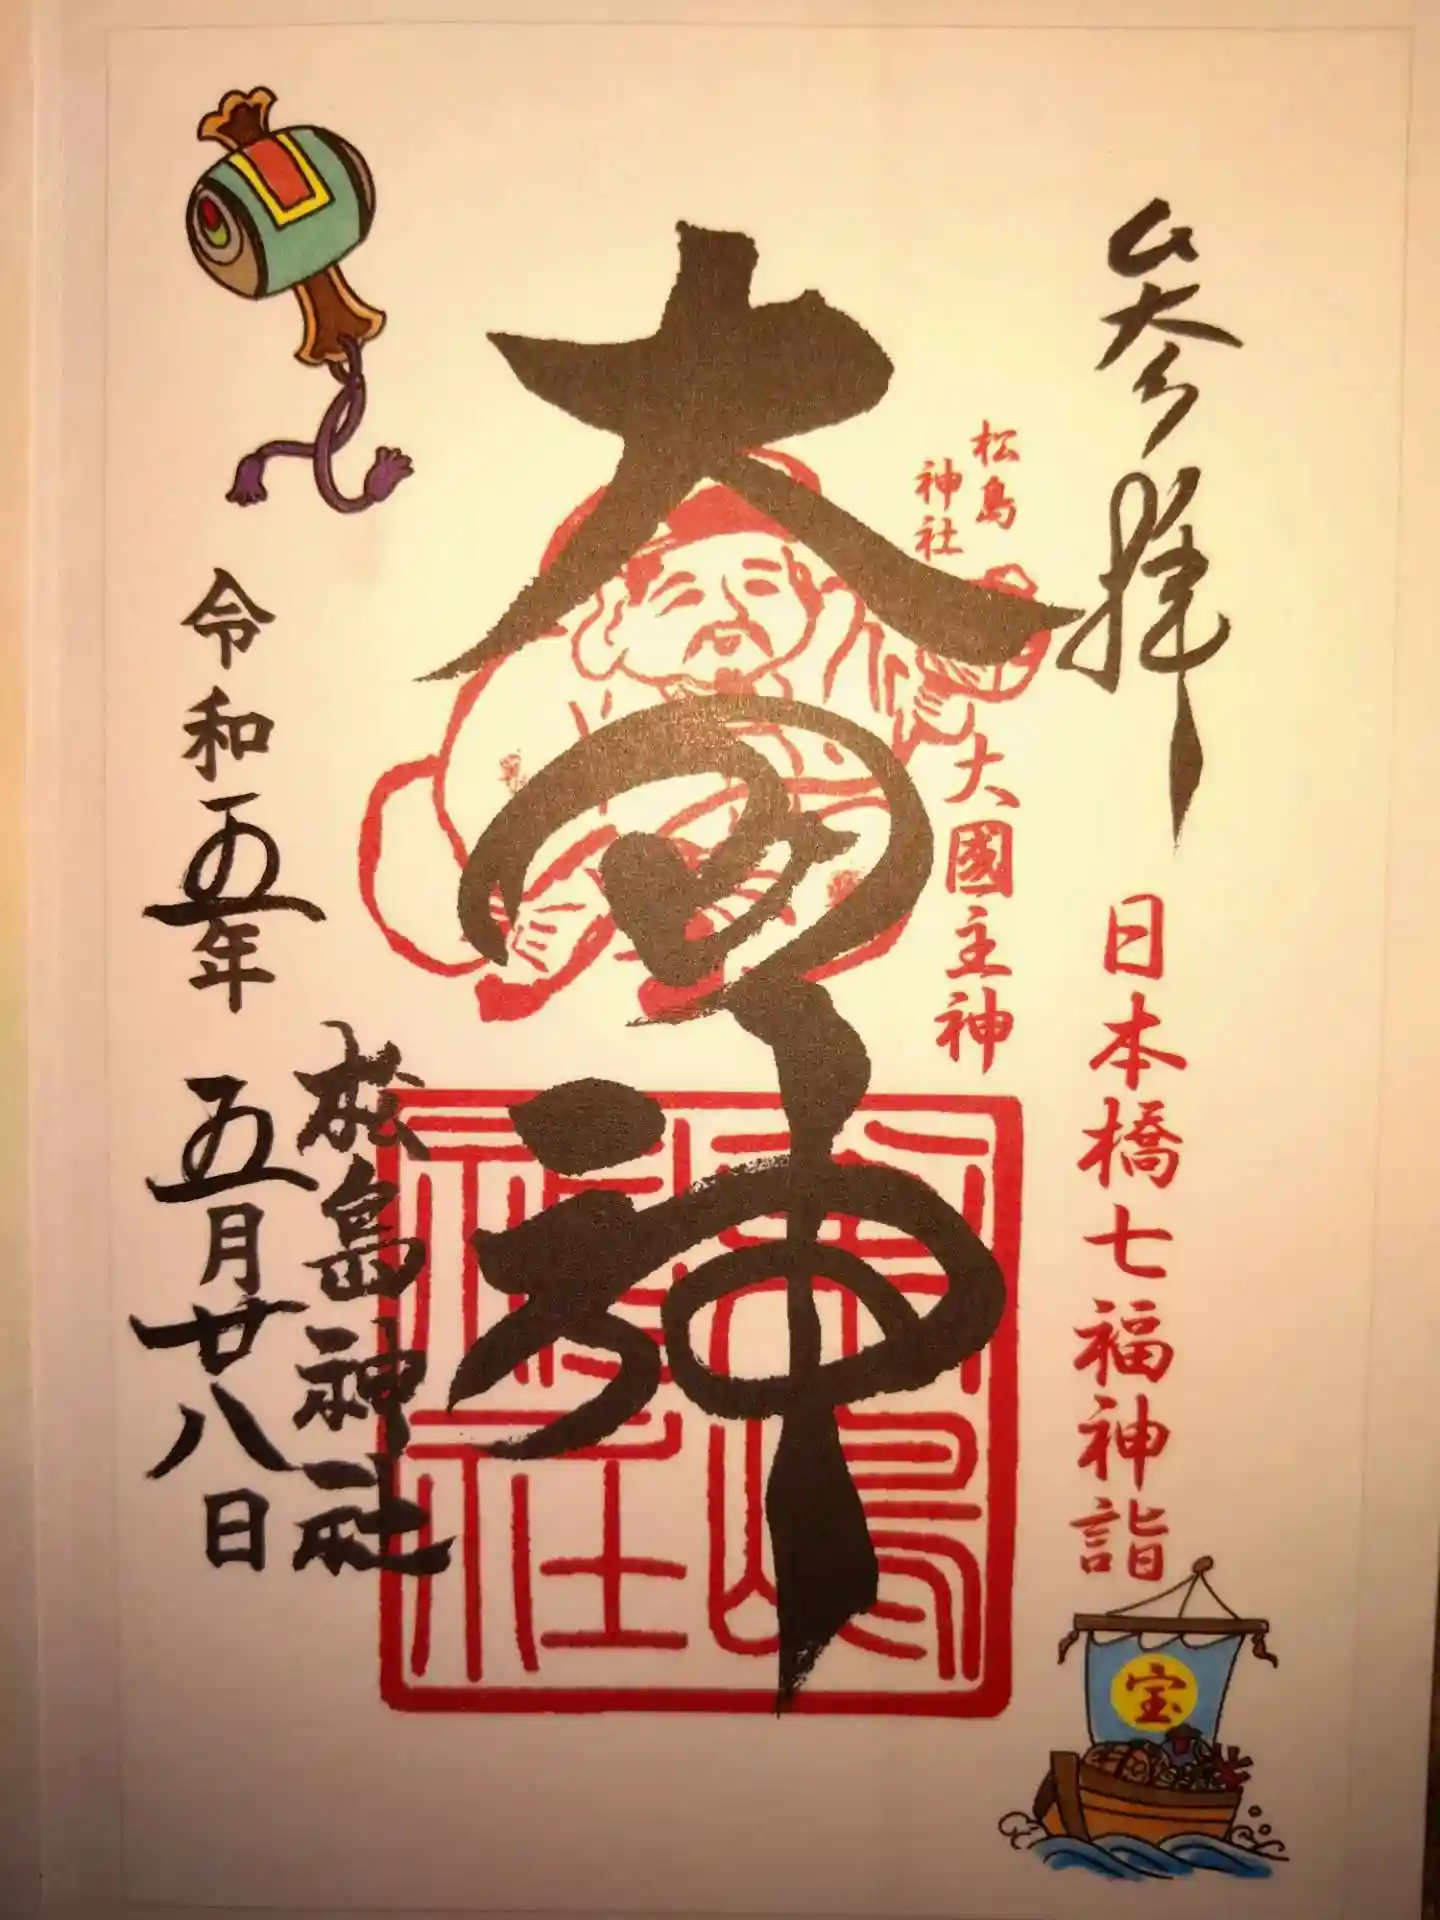 参拝
日本橋七福神詣
松島
神社
大國主神
大国神
松島神社
令和五年 五月廿八日
宝